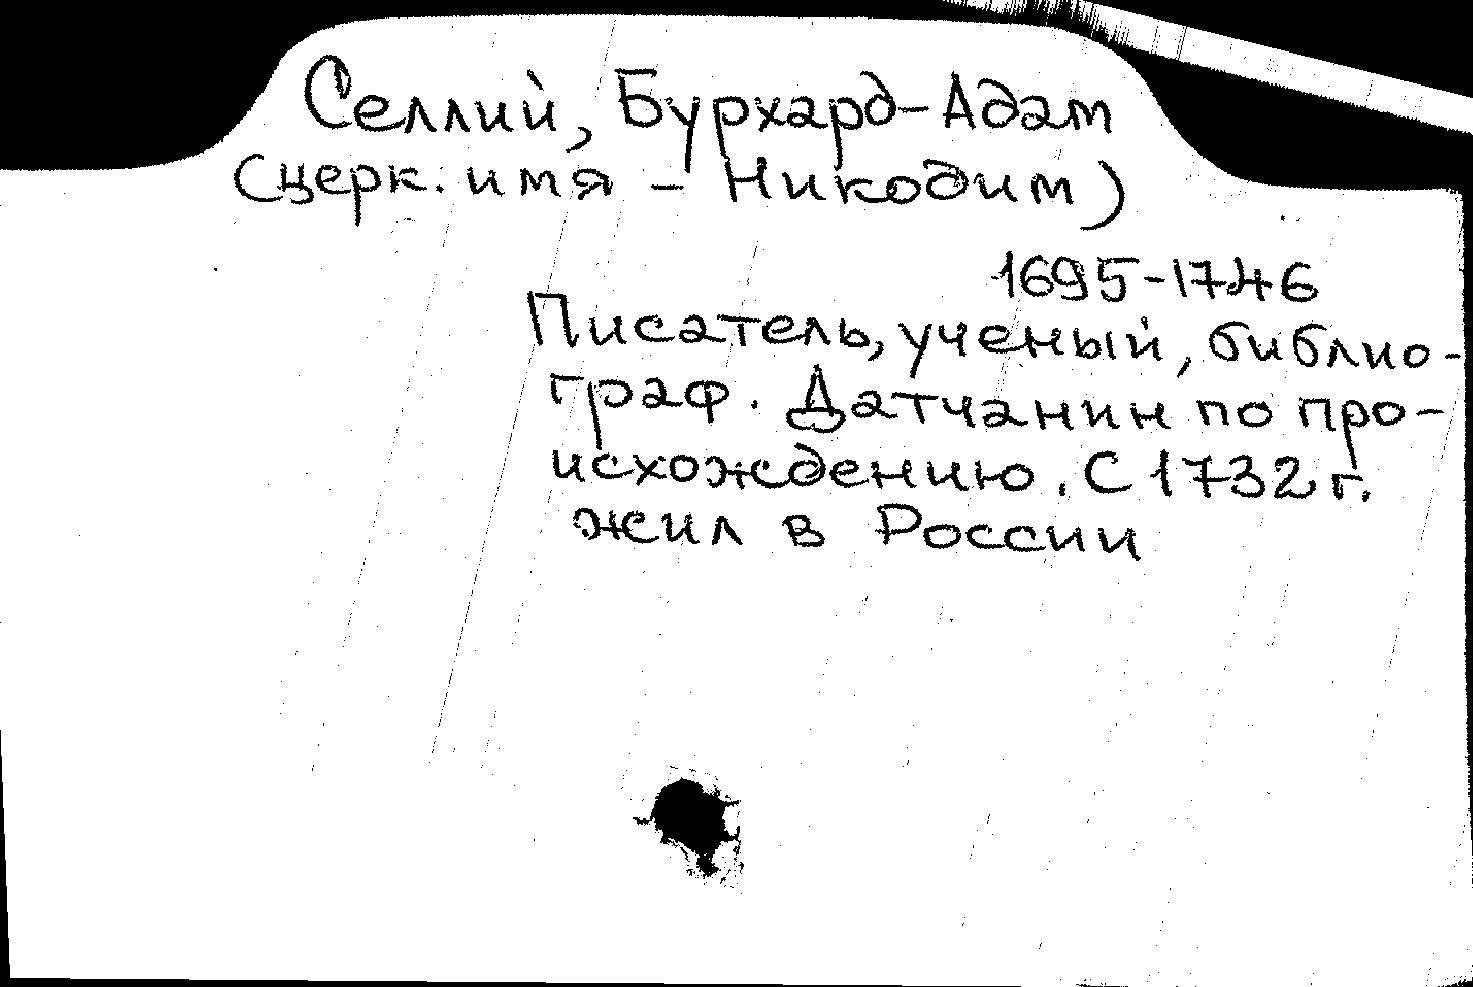 Селлий, Бурхард-Адам
(церк. имя – Никодим)
1695-1746
Писатель, ученый, библио-
граф. Датчанин по про-
исхождению. С 1732 г.
жил в России